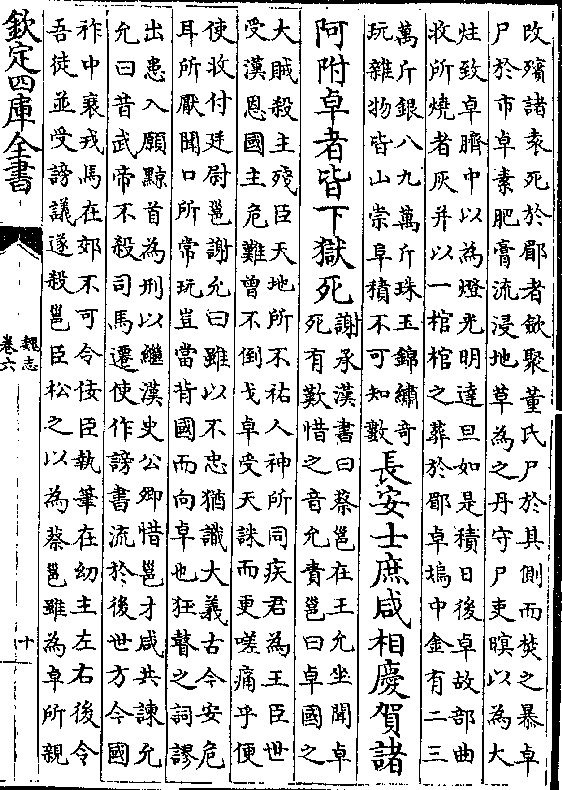 改殯諸袁死於郿者斂聚董氏尸於其側而焚之暴卓
尸於市卓素肥膏流浸地草為之丹守尸吏暝以為大
炷致卓臍中以為燈光明達旦如是積日後卓故部曲
收所燒者灰并以一棺棺之葬於郿卓塢中金有二三
萬斤銀八九萬斤珠玉錦繡奇
玩雜物皆山崇阜積不可知數
長安士庶咸相慶賀諸
阿附卓者皆下獄死
謝承漢書曰蔡邕在王允坐聞卓
死有歎惜之音允責邕曰卓國之
大賊殺主殘臣天地所不祐人神所同疾君為王臣世
受漢恩國主危難曾不倒戈卓受天誅而更嗟痛乎便
使收付廷尉邕謝允曰雖以不忠猶識大義古今安危
耳所厭聞口所常玩豈當背國而向卓也狂瞽之詞謬
出患入願黥首為刑以繼漢史公卿惜邕才咸共諫允
允曰昔武帝不殺司馬遷使作謗書流於後世方今國
祚中衰戎馬在郊不可令佞臣執筆在幼主左右後令
吾徒並受謗議遂殺邕臣松之以為蔡邕雖為卓所親
欽定四庫全書
魏志
卷六
十